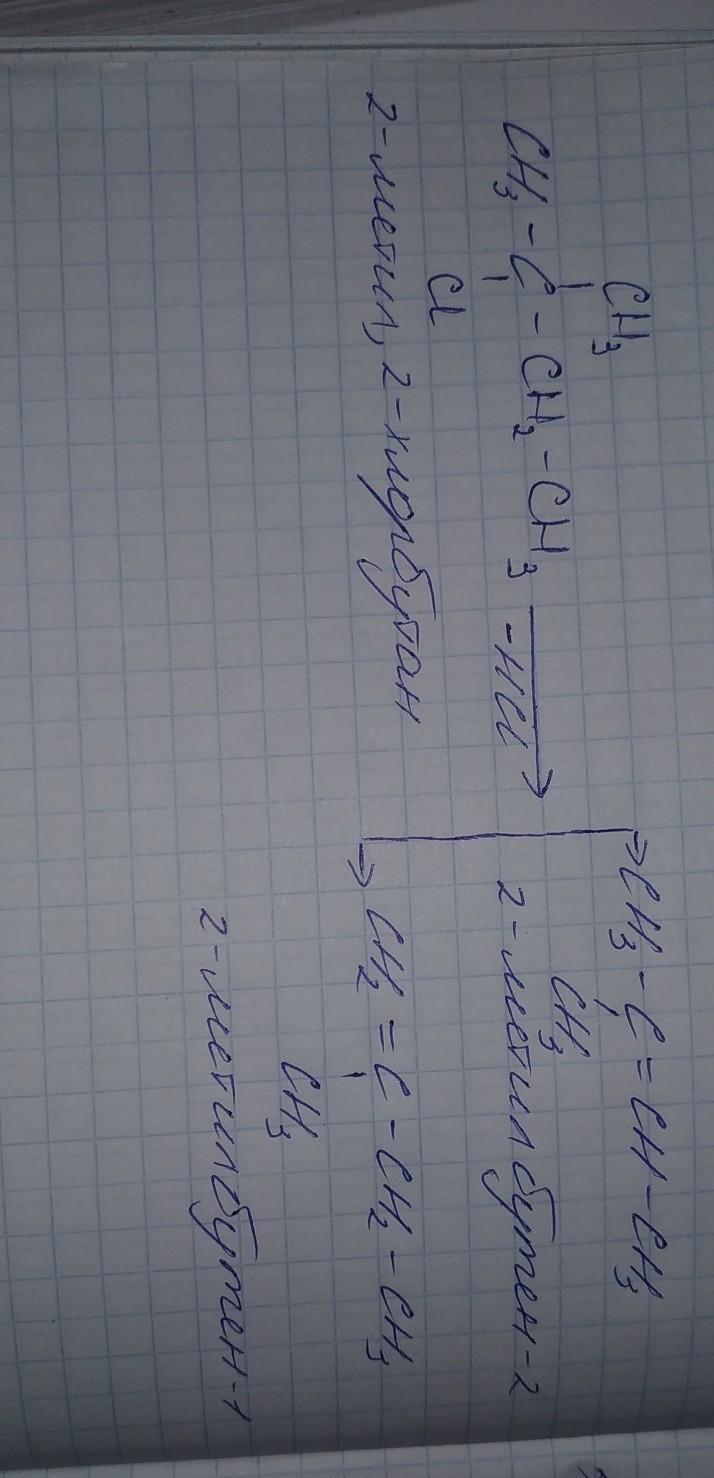 CH₃
CH₃ - C - CH₂ - CH₃ -HCl →
Cl
2-метил, 2-хлорбутан
→ CH₃ - C = CH - CH₃
CH₃
2-метилбутен-2
→ CH₂ = C - CH₂ - CH₃
CH₃
2-метилбутен-1